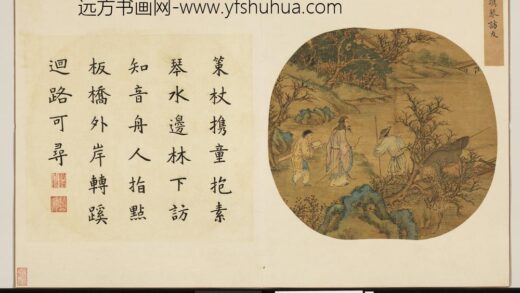 远方书画网-www.yfshuhua.com
攜琴訪友
策杖携童抱素
琴水邊林下訪
知音舟人指點
板橋外岸轉蹊
迴路可尋